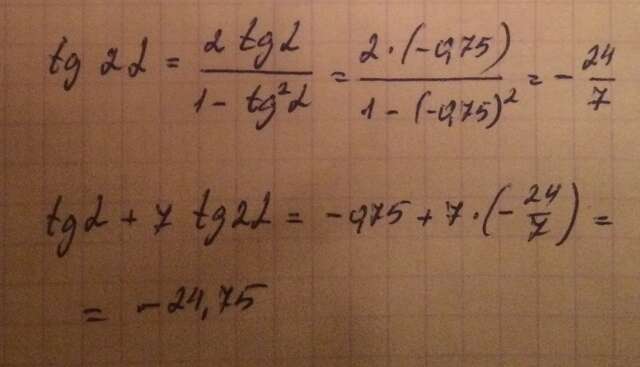 tg 2α = 2 tgα / 1 - tg²α = 2·(-0,75) / 1 - (-0,75)² = - 24/7
tgα + 7 tg2α = -0,75 + 7·(- 24/7) =
= -24,75